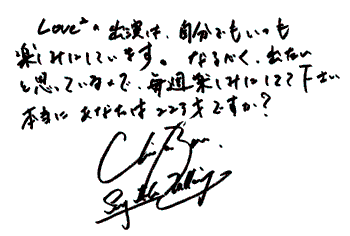 Love²の出演は、自分でもいつも
楽しみにしています。なるべく、出たい
と思っているので、毎週楽しみにしてて下さい
本当にあなたは223才ですか?